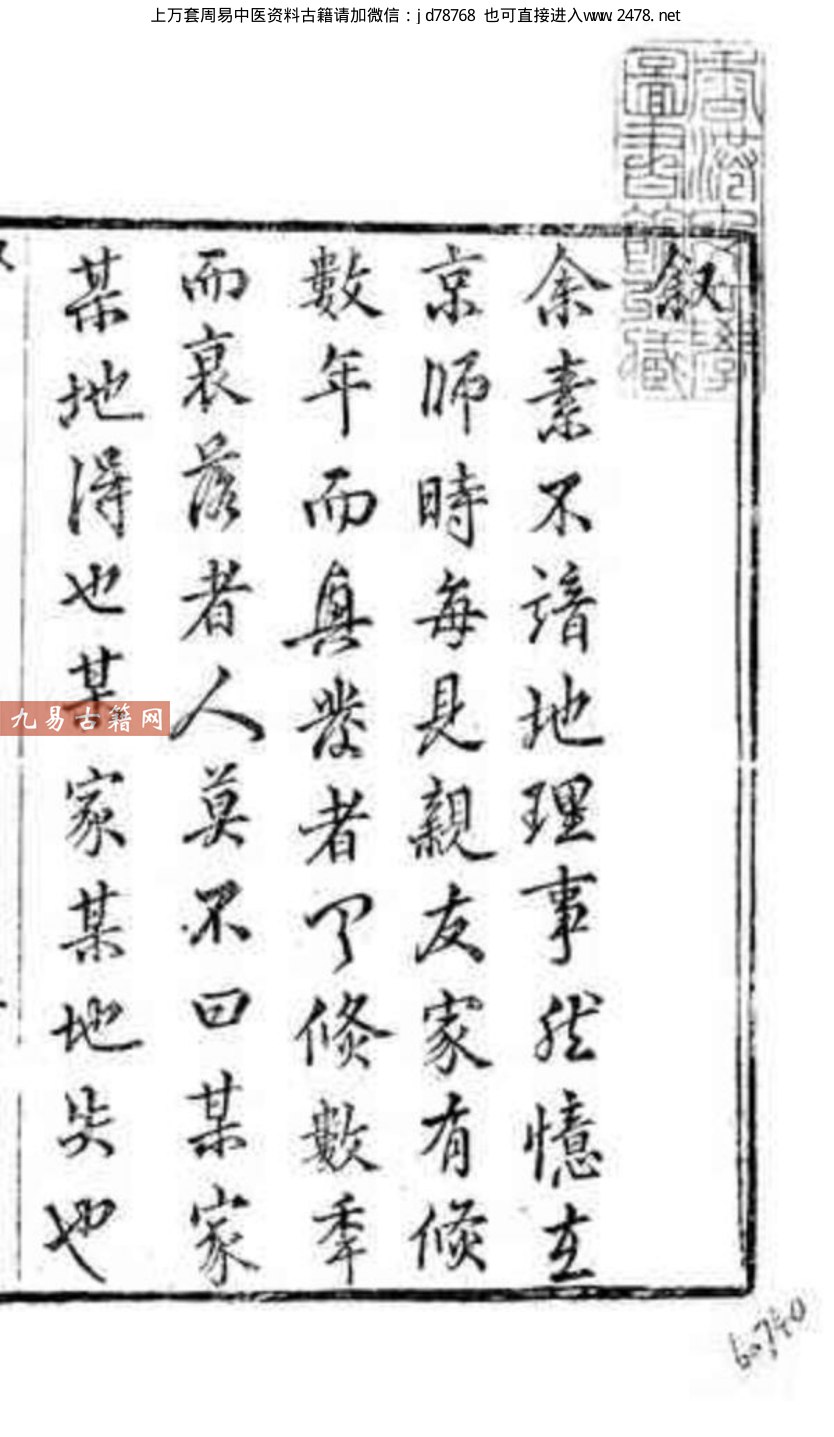 上万套周易中医资料古籍请加微信：jd78768 也可直接进入www.2478.net
叙
余素不諳地理事然憶在
京師時每見親友家有倐
數年而真發者倐數秊
而衰落者人莫不曰某家
某地得也某家某地失也
九易古籍网